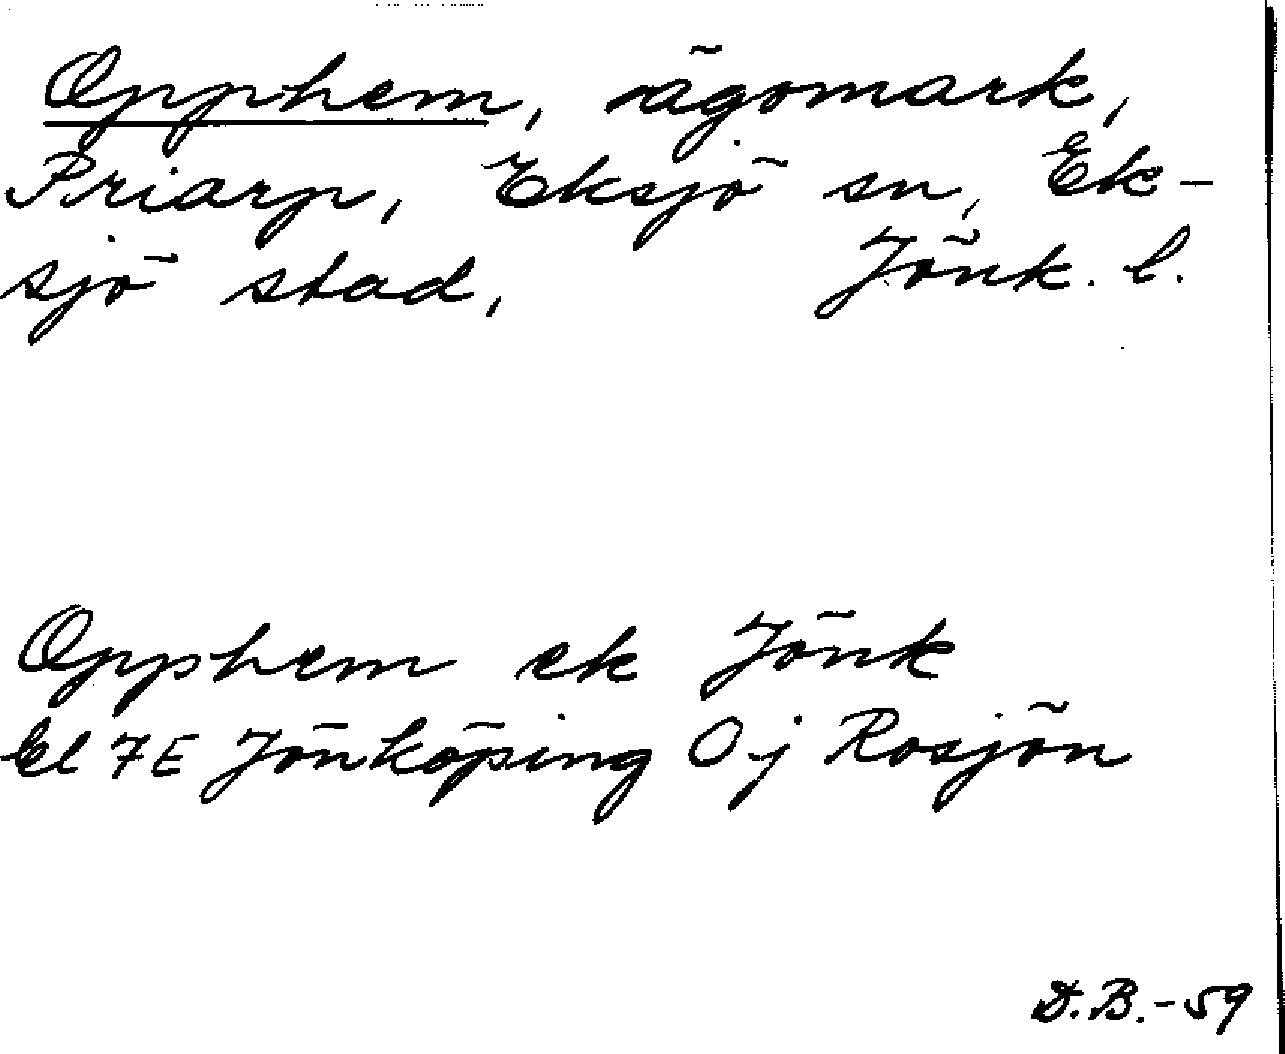 Opphem, ägomark,
Priarp, Eksjö sn, Ek-
sjö stad, Jönk. l.
Opphem ek Jönk
El 7E Jönköping Oj Rosjön
D.B.-59